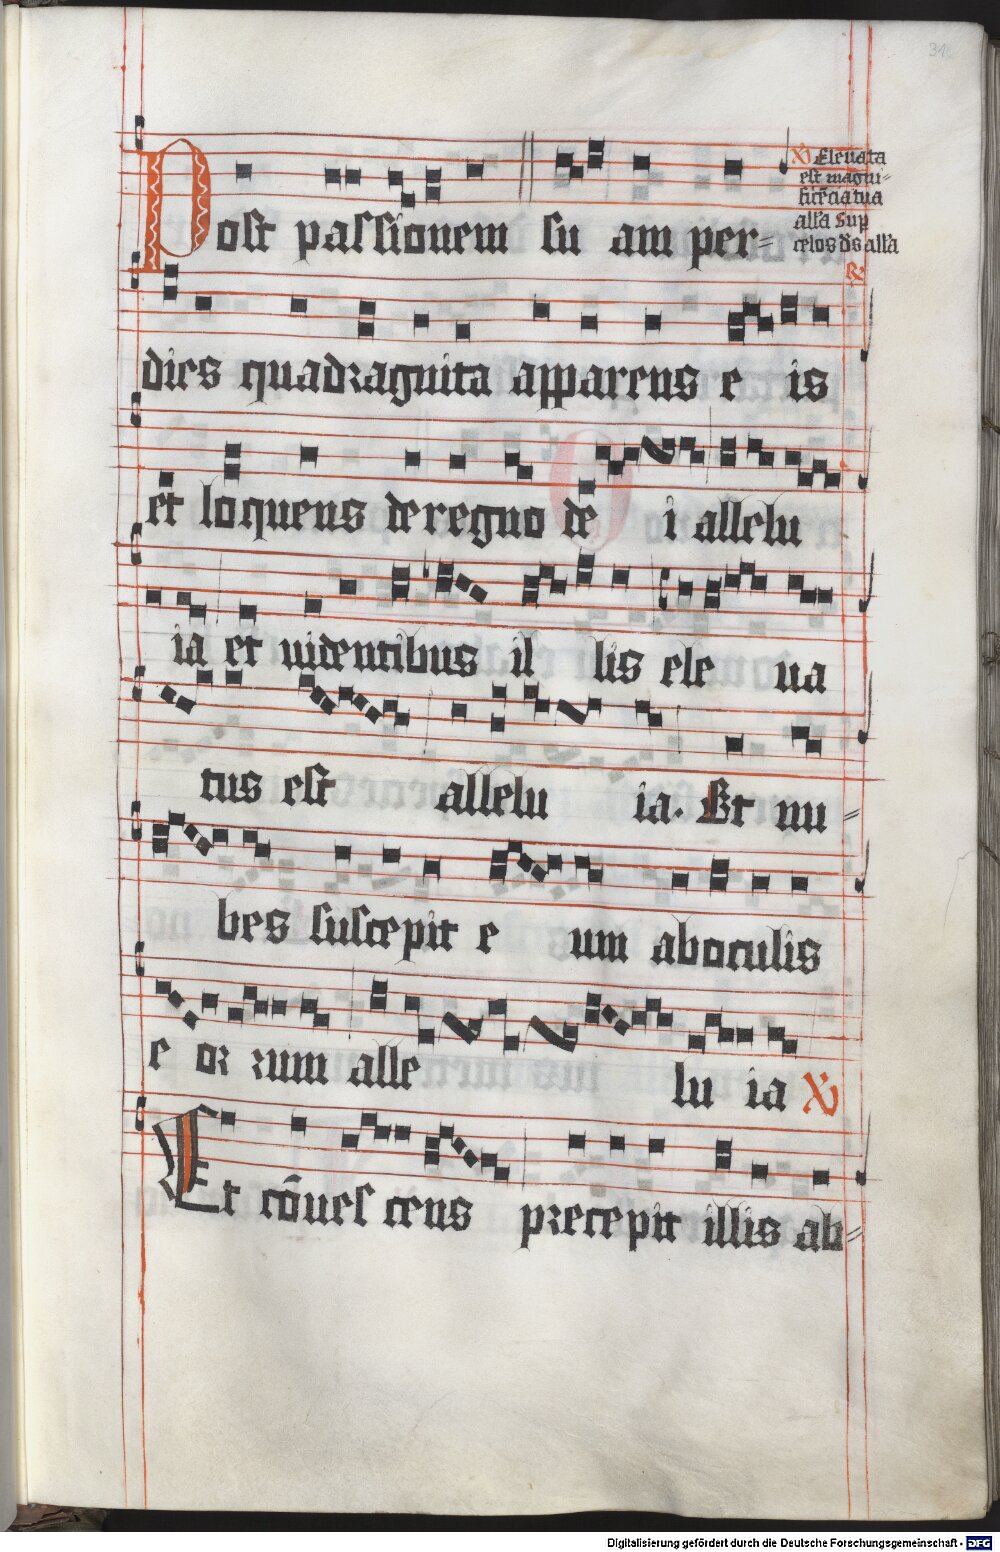 Post passionem su am per=
V Eleuata
est magni=
ficētia tua
alla sup
celos ds alla
R
dies quadraginta apparens e is
et loquens de regno de i allelu
ia et uidentibus il lis ele ua
tus est allelu ia. Et nu=
bes suscepit e um ab oculis
e or rum alle lu ia V
Et cōues cens precepit illis ab=
Digitalisierung gefördert durch die Deutsche Forschungsgemeinschaft - DFG